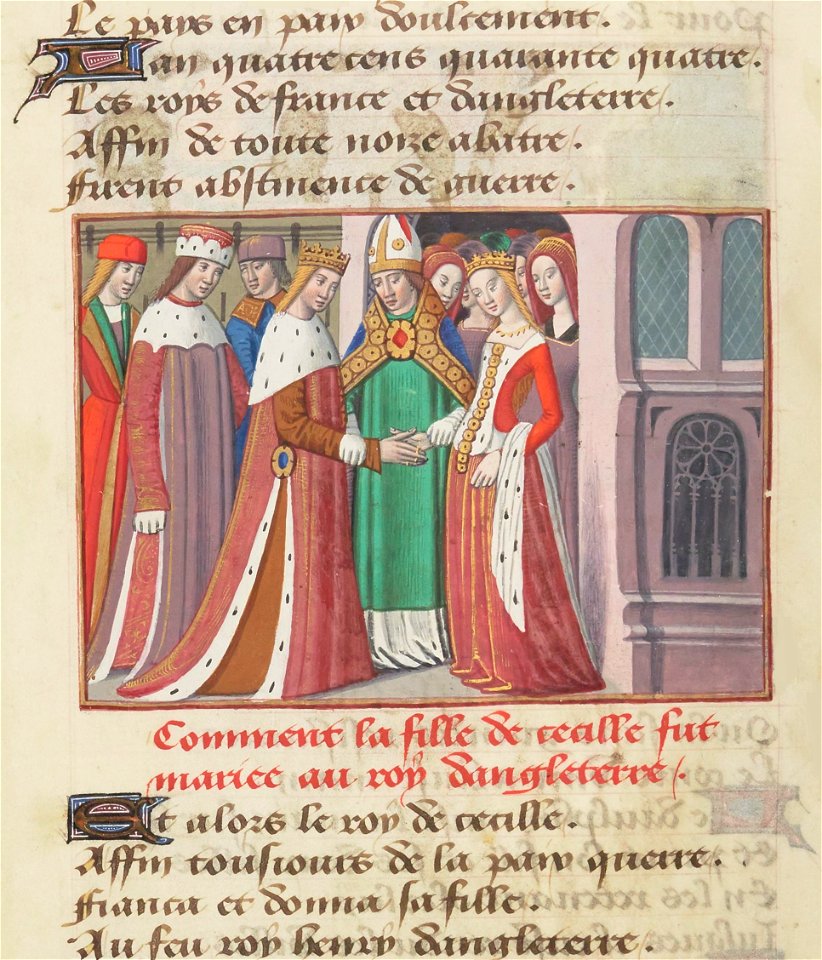 Le pays en paix doulcement.
Lan quatre cens quarante quatre.
Les roys de france et dangleterre.
Affin de toute noize abatre.
Firent abstinence de guerre.
Comment la fille de cecille fut
mariee au roy dangleterre.
Et alors le roy de cecille.
Affin tousiours de la paix querre.
Fianca et donna sa fille.
Au feu roy henry dangleterre.